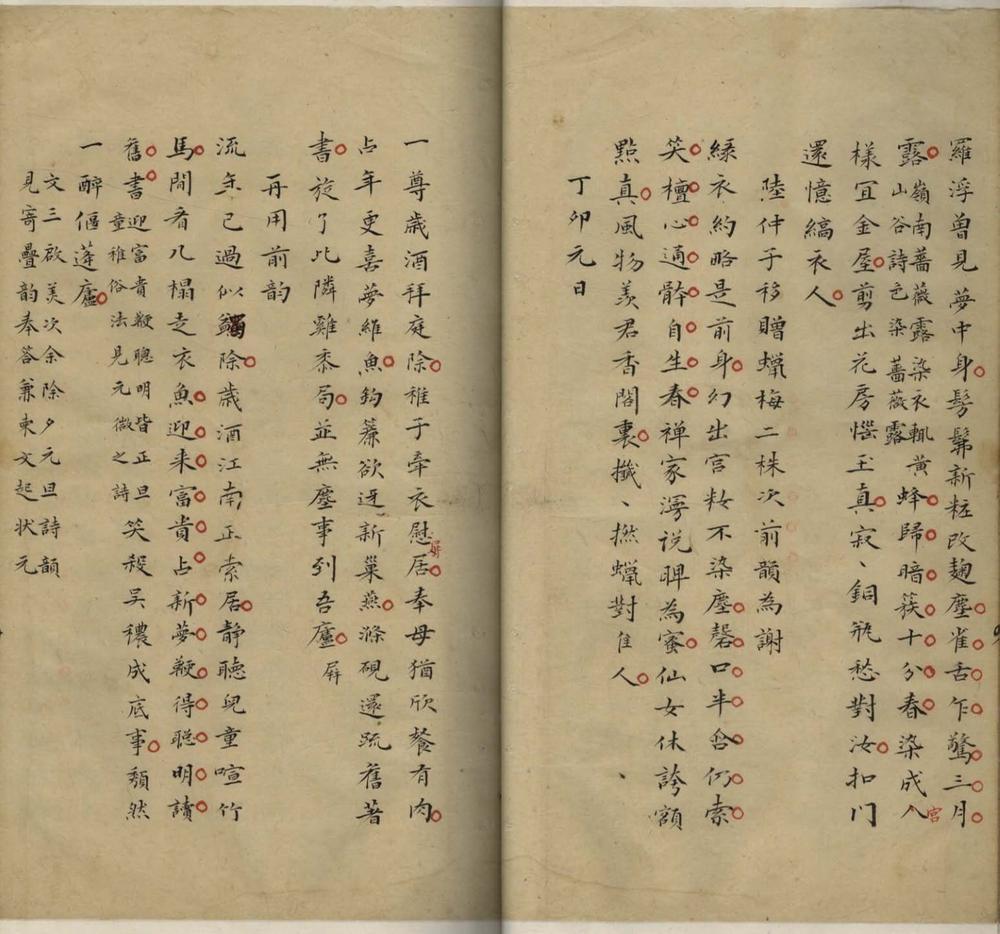 羅浮曾見夢中身髣髴新粧改麹塵雀舌乍驚三月
露嶺南薔薇露染衣輒黄
山谷詩色染薔薇露
蜂歸暗蔟十分春染成人宮
樣宜金屋剪出花房惱玉真寂、銅瓶愁對汝扣門
還憶縞衣人
陸仲子移贈蠟梅二株次前韻為謝
緑衣約略是前身幻出宮粧不染塵磬口半含仍索
笑檀心通骨自生春禅家漫說呷為蜜仙女休誇額
點真風物羨君香閣裏擮、撚蠟對佳人、
丁卯元日
一尊歳酒拜庭除稚子牽衣慰屏居奉母猶欣餐有肉
占年更喜夢維魚鈎簾欲迓新巢燕滌硯還疏舊著
書旋了比隣雞黍局並無塵事到吾廬屏
再用前韵
流年已過似蠲除歳酒江南正索居靜聽兒童喧竹
馬間看几榻走衣魚迎来富貴占新夢鞭得聡明讀
舊書迎富貴鞭聰明皆正旦
童稚俗法見元微之詩
笑殺吴穠成底事頽然
一醉傴蓬廬
文三啟美次余除夕元旦詩韻
見寄疊韵奉答兼柬文起状元